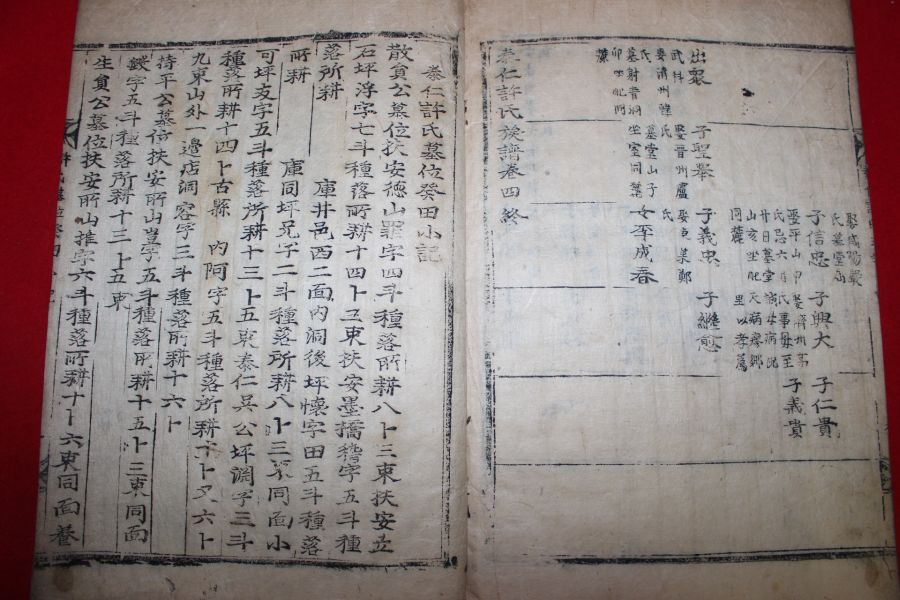 子仁貴
子義貴
子興大
娶濟州高
氏事母至
誠母病
以孝薦
子信忠
娶平山申
氏忌六月
廿日墓堂
山亥坐
同麓
子繼愈
子義忠
女李成春
子聖擧
娶晋州盧
氏墓堂山子
坐室同麓
出衆
武科
娶淸州韓
卯坐
麓
泰仁許氏族譜卷四終
泰仁許氏墓位癸田小記
散貟公墓位扶安德山羅字四斗種落所耕八卜三束扶安立
石坪浮字七斗種落所耕十四卜五束扶安墨橋 字五斗種
落所耕
庫井邑西二面內洞後坪懷字田五斗種落
所耕
庫同坪兄字二斗種落所耕八卜三束同面小
可坪友字五斗種落所耕十三卜五束泰仁吳公坪淵字三斗
種落所耕十四卜古縣
內阿字五斗種落所耕 卜又六卜
九東山外一邊店洞容字三斗種落所耕十六卜
持平公墓位扶安所山豈字五斗種落所耕十五卜三束同面
餞字五斗種落所耕十三卜五束
生貟公墓位扶安所山推字六斗種落所耕十卜六束同面養